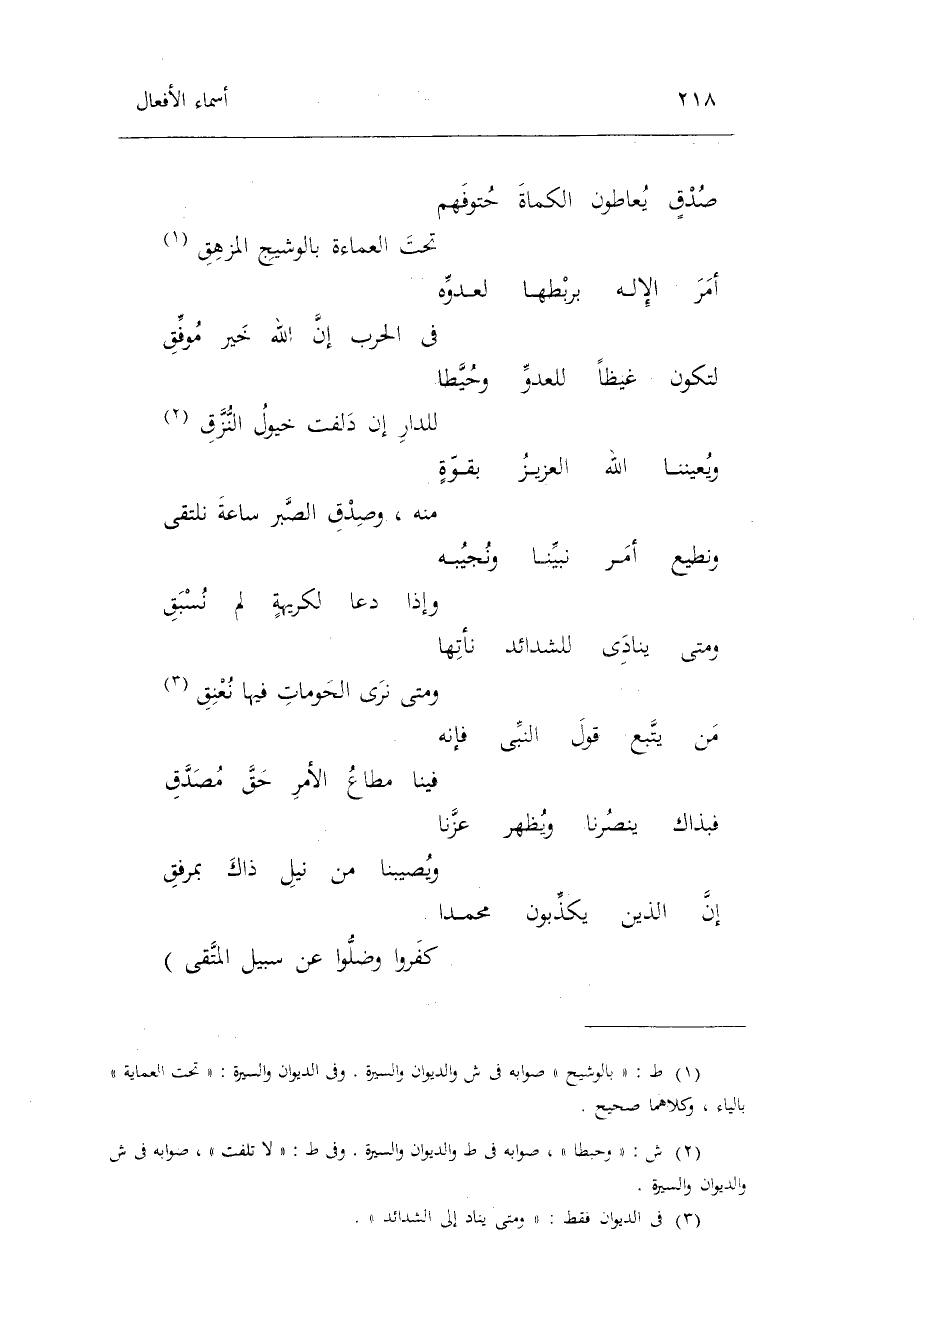 ٢١٨ أسماء الأفعال
صُدْقٍ يُعاطون الكماةَ حُتوفَهم
تحتَ العماءة بالوشيجِ المزهِقِ (١)
أمَرَ الإلـه بربْطهـا لعـدوِّه
فى الحرب إنَّ الله خَير مُوفِّقِ
لتكون غيظاً للعدوِّ وحُيَّطا
للدارِ إن دَلفت خيولُ النُّزَّقِ (٢)
ويُعيننـا الله العزيـزُ بقـوّةٍ
منه ، وصِدْقِ الصَّبر ساعةَ نلتقى
ونطيع أمَـر نبيِّنـا ونُجيُبـه
وإذا دعا لكريهةٍ لم نُسْبَقِ
ومتى ينادَى للشدائد نأتِها
ومتى نرَى الحَوماتِ فيها نُعْنِقِ (٣)
مَن يتَّبع قولَ النبِّى فإنه
فينا مطاعُ الأمرِ حَقَّ مُصَدَّقِ
فبذاك ينصُرنا ويُظهر عزَّنا
ويُصيبنا من نيلِ ذاكَ بمرفقِ
إنَّ الذين يكذِّبون محمـدا
كفَروا وضلُّوا عن سبيل المتَّقى )
(١) ط : « بالوشيح » صوابه فى ش والديوان والسيرة . وفى الديوان والسيرة : « تحت العماية »
بالياء ، وكلاهما صحيح .
(٢) ش : « وحبطا » ، صوابه فى ط والديوان والسيرة . وفى ط : « لا تلفت » ، صوابه فى ش
والديوان والسيرة .
(٣) فى الديوان فقط : « ومتى يناد إلى الشدائد » .